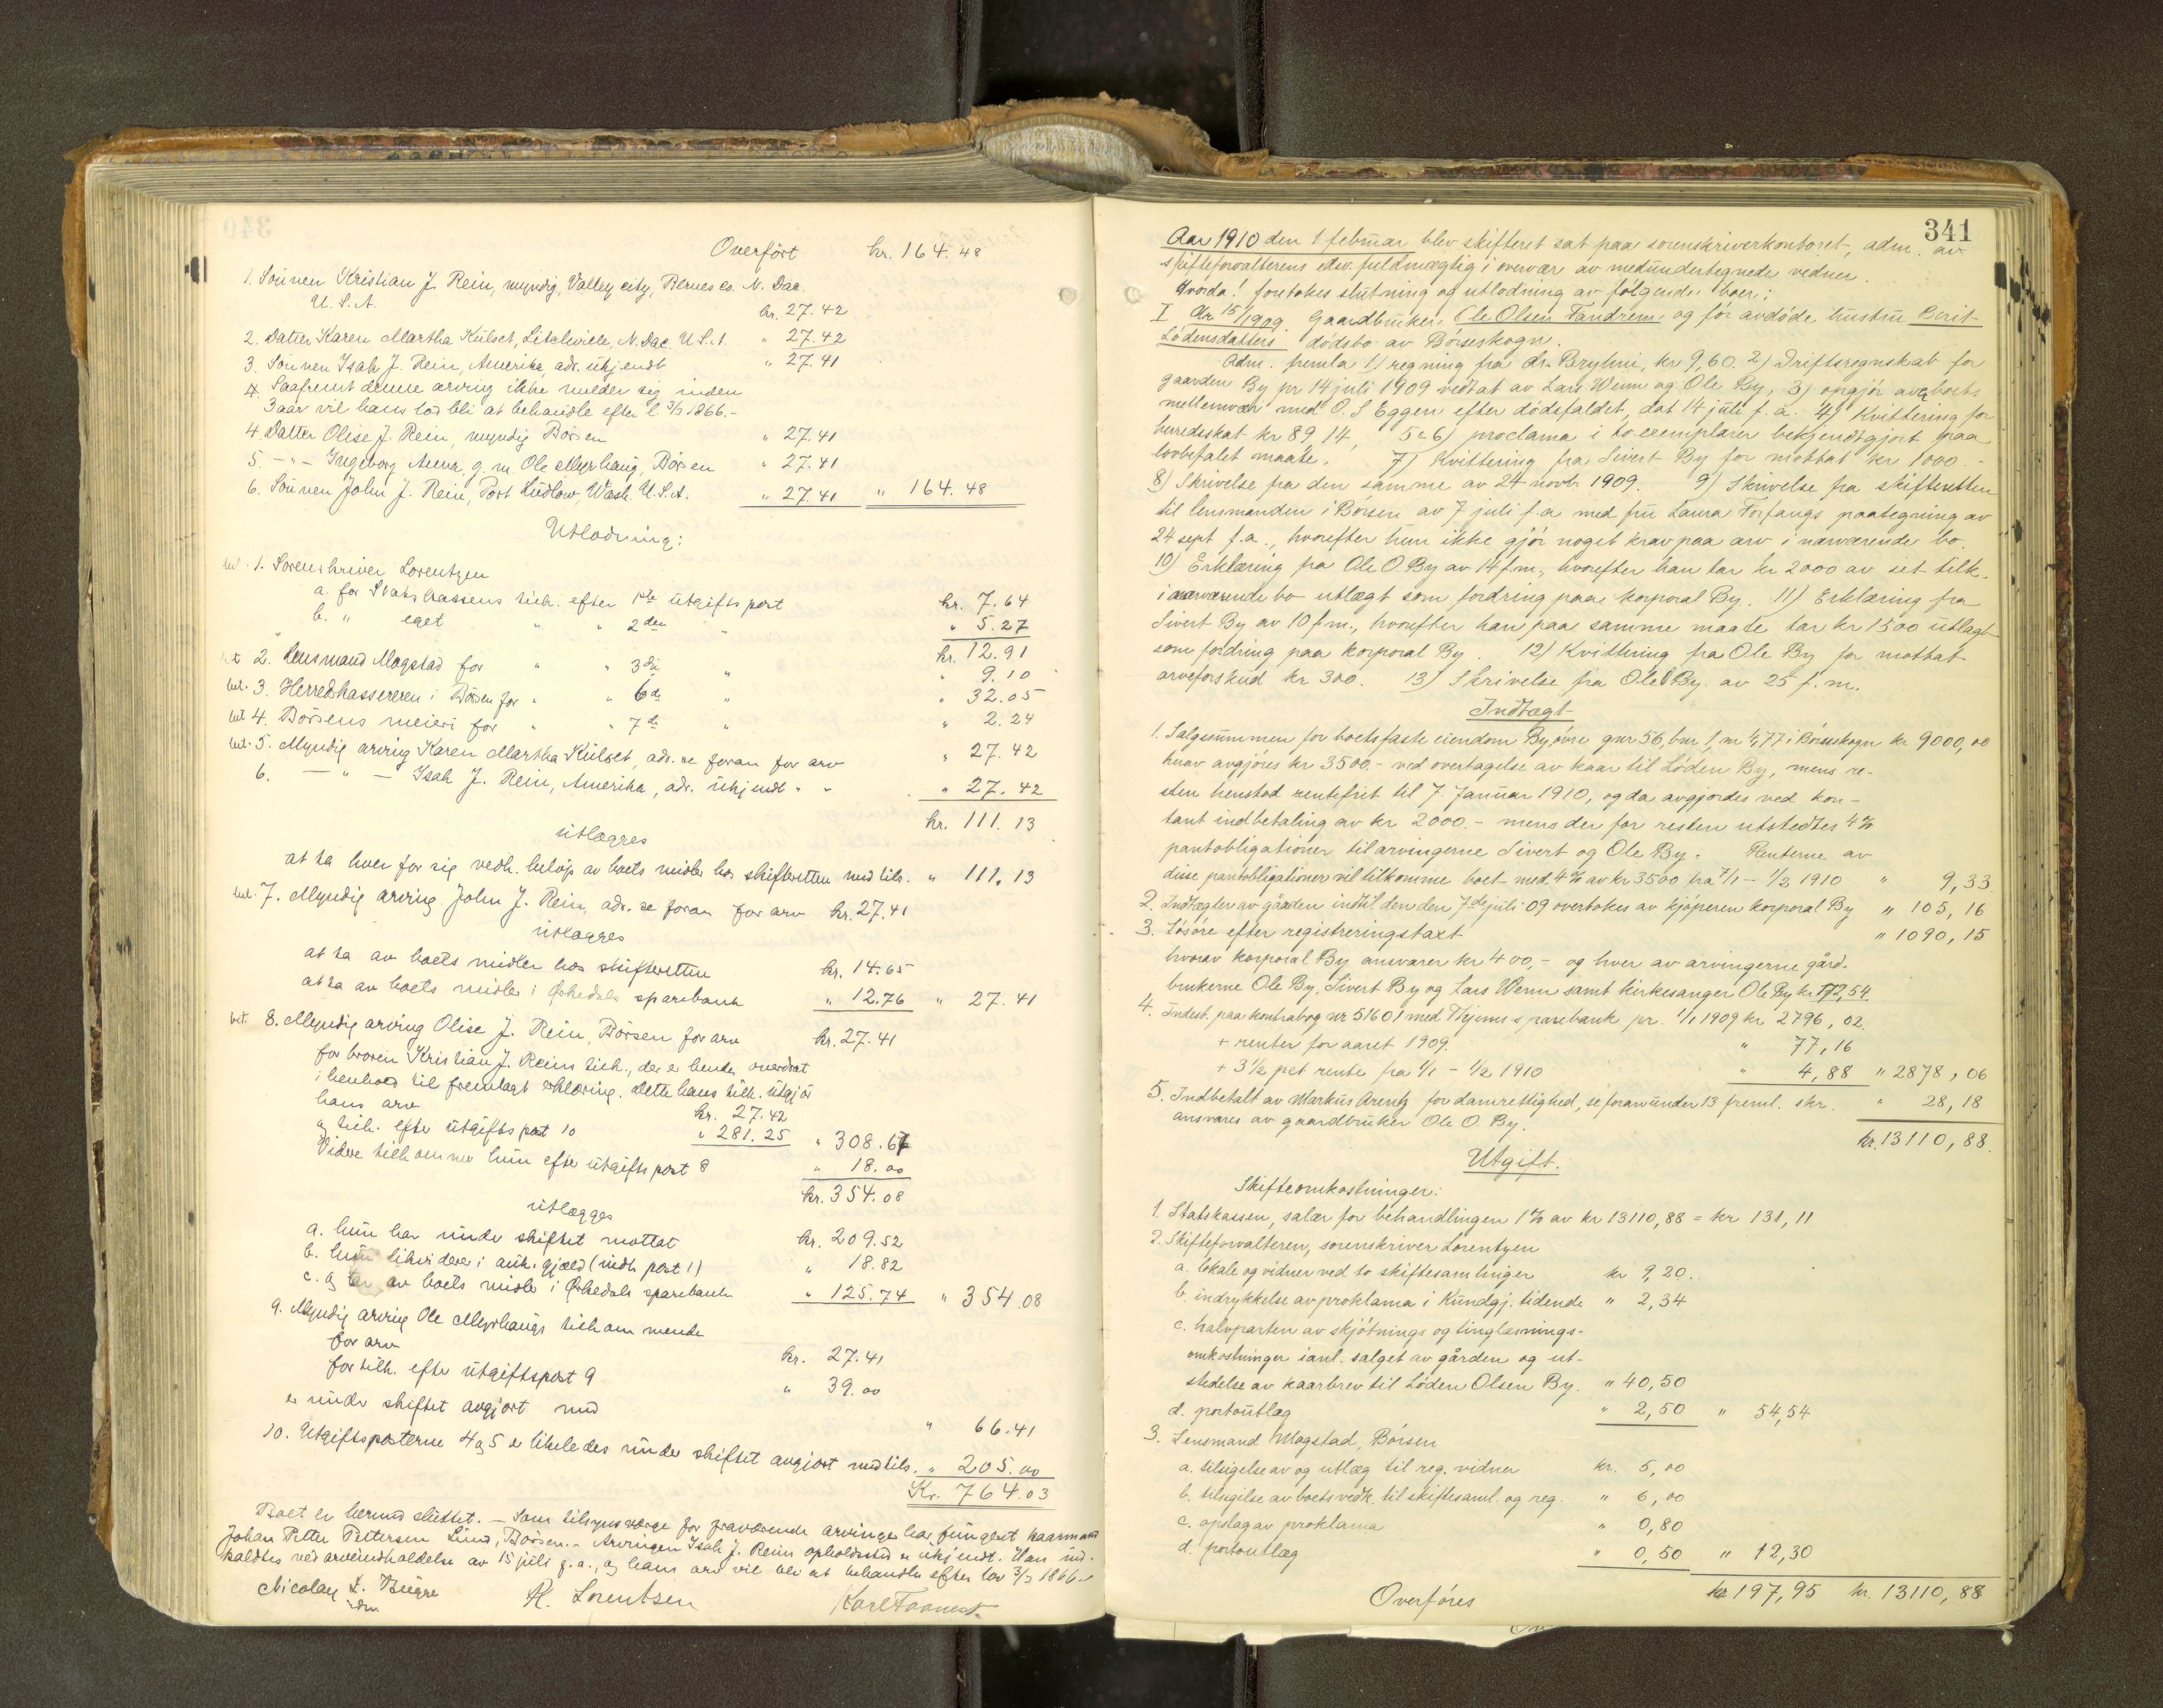 Overført kr. 164.48
1. Sønnen Kristian J. Rein, myndig, Valley city, Barnes co. N. Dac.
U.S.A. kr. 27.42
2. Datter Karen Martha Külset, N. Dac. U.S.A. " 27.42
3. Sønnen Isak J. Rein, Amerika, adr. ukjendt " 27.41
Saafremt denne arving ikke melder sig inden
3 aar vil hans lod bli at behandle efter l. 3/3 1866.-
4. Datter Olise J. Rein, myndig Børsen " 27.41
5. - " - Ingeborg Anna, g. m. Ole Myrhaug, Børsen " 27.41
6. Sønnen John J. Rein, Port Ludlow Wash. U.S.A. " 27.41 " 164.48
Utlodning:
bet. 1. Sorenskriver Lorentzen
a. for Statskassens tilk. efter 1ste utgiftspost kr. 7.64
b. " eget " " 2den " " 5.27
kr. 12.91
bet. 2. Lensmand Mogstad for " " 3die " " 9.10
bet. 3. Herredskassereren i Børsen for " " 6te " " 32.05
bet. 4. Børsens meieri for " " 7de " " 2.24
bet. 5. Myndig arving Karen Martha Külset, adr. se foran for arv " 27.42
6. - " - Isak J. Rein, Amerika, adr. ukjendt " " " 27.42
kr. 111.13
utlægges
at ta hver for sig vedk. beløp av boets midler hos skifteretten med tils. " 111.13
bet. 7. Myndig arving John J. Rein, adr. se foran for arv kr. 27.41
utlægges
at ta av boets midler hos skifteretten kr. 14.65
at ta av boets midler i Orkedals sparebank " 12.76 " 27.41
bet. 8. Myndig arving Olise J. Rein, Børsen for arv kr. 27.41
for broren Kristian J. Reins tilk., der er hende overdrat
i henhold til fremlagt erklæring. Dette hans tilk. utgjør
hans arv kr. 27.42
og tilk. efter utgiftspost 10 " 281.25 " 308.67
Videre tilkommer hun efter utgiftspost 8 " 18.00
kr. 354.08
utlægges
a. hun har under skiftet mottat kr. 209.52
b. hun likviderer i auk. gjæld (indt. post 1) " 18.82
c. og tar av boets midler i Orkedals sparebank " 125.74 " 354.08
9. Myndig arving Ole Myrhaugs tilkommende
for arv kr. 27.41
for tilk. efter utgiftspost 9 " 39.00
er under skiftet avgjort med " 66.41
10. Utgiftsposterne 4 og 5 er likeledes under skiftet avgjort med tils. " 205.00
Kr. 764.03
Boet er hermed sluttet. - Som tilsynsværge for fraværende arvinger har fungert kaarmand
Johan Petter Pettersen Lund, Børsen. - Arvingen Isak J. Reins opholdssted er ukjendt. Han ind-
kaldtes ved arveindkaldelse av 15 juli f.a., og hans arv vil bli at behandle efter lov 3/3 1866.-
Nicolay L. Bugge
adm.
H. Lorentsen
Karl Faanes
341
Aar 1910 den 1 februar blev skifteret sat paa sorenskriverkontoret, adm. av
skifteforvalterens edsv. fuldmægtig i overvær av medundertegnede vidner.
Hvorda! foretokes slutning og utlodning av følgende boer:
I Nr 15/1909. Gaardbruker Ole Olsen Tandrem og før avdøde hustru Berit
Lødensdatters dødsbo av Børseskogn.
Adm. fremla 1) regning fra dr. Bryhni, kr 9,60. 2) Driftsregnskab for
gaarden By pr 14 juli 1909 vedtat av Lars Wenn og Ole By, 3) opgjør av boets
mellemvær med O. S Eggen efter dødsfaldet, dat 14 juli f.a. 4) Kvittering for
herredsskat kr 89,14, 5 & 6) proclama i to exemplarer bekjendtgjort paa
lovbefalet maate. 7) Kvittering fra Sivert By for mottat kr 1000.-
8) Skrivelse fra den samme av 24 novbr 1909. 9) Skrivelse fra skifteretten
til lensmanden i Børsen av 7 juli f.a med fru Laura Forfangs paategning av
24 sept f.a., hvorefter hun ikke gjør noget krav paa arv i nærværende bo.
10) Erklæring fra Ole O. By av 14 f.m., hvorefter han tar kr 2000 av sit tilk.
i nærværende bo utlægt som fordring paa korporal By. 11) Erklæring fra
Sivert By av 10 f.m., hvorefter han paa samme maate tar kr 1500 utlagt
som fordring paa korporal By. 12) Kvittering fra Ole By for mottat
arveforskud kr 300. 13) Skrivelse fra Ole By av 25 f.m.
Indtægt
1. Salgssummen for boets faste eiendom By, øvre gnr 56, bnr 1, m 4,77 i Børseskogn kr 9000,00
hvav avgjøres kr 3500.- ved overtagelse av kaar til Løden By, mens re-
sten henstod rentefrit til 7 Januar 1910, og da avgjordes ved kon-
tant indbetaling av kr 2000.- mens der for resten utstedtes 4%
pantobligationer til arvingerne Sivert og Ole By. Renterne av
disse pantobligationer vil tilkomme boet med 4% av kr 3500 fra 7/1 - 1/2 1910 " 9,33.
2. Indtægter av gaarden indtil den den 7de juli 09 overtokes av kjøperen korporal By " 105,16
3. Løsøre efter registreringstaxt " 1090,15
hvorav korporal By ansvarer kr 400,- og hver av arvingerne gård-
brukerne Ole By, Sivert By og Lars Wenn samt kirkesanger Ole By kr 172,54
4. Indest. paa kontrabog nr 51601 med Thjems sparebank pr. 1/1 1909 kr 2796,02.
+ renter for aaret 1909. " 77,16
+ 3½ pct rente fra 1/1 - 1/2 1910 " 4,88 " 2878,06
5. Indbetalt av Markus Arentz for damrettighed, se foran under 13 freml. skr. " 28,18
ansvares av gaardbruker Ole O. By.
kr. 13110,88.
Utgift.
Skifteomkostninger:
1. Statskassen, salær for behandlingen 1% av kr 13110,88 = kr 131,11
2. Skifteforvalteren, sorenskriver Lorentzen
a. lokale og vidner ved to skiftesamlinger kr 9,20.
b. indrykkelse av proklama i Kundgj. tidende " 2,34
c. halvparten av skjøtnings og tinglæsnings-
omkostninger i anl. salget av gården og ut-
stedelse av kaarbrev til Løden Olsen By. " 40,50
d. portoutlæg " 2,50 " 54,54
3. Lensmand Mogstad, Børsen
a. tilsigelse av og utlæg til reg. vidner kr. 5,00
b. tilsigelse av boets vedk. til skiftesaml. og reg. " 6,00
c. opslag av proklama " 0,80
d. portoutlæg " 0,50 " 12,30
Overføres kr 197,95 kr. 13110,88